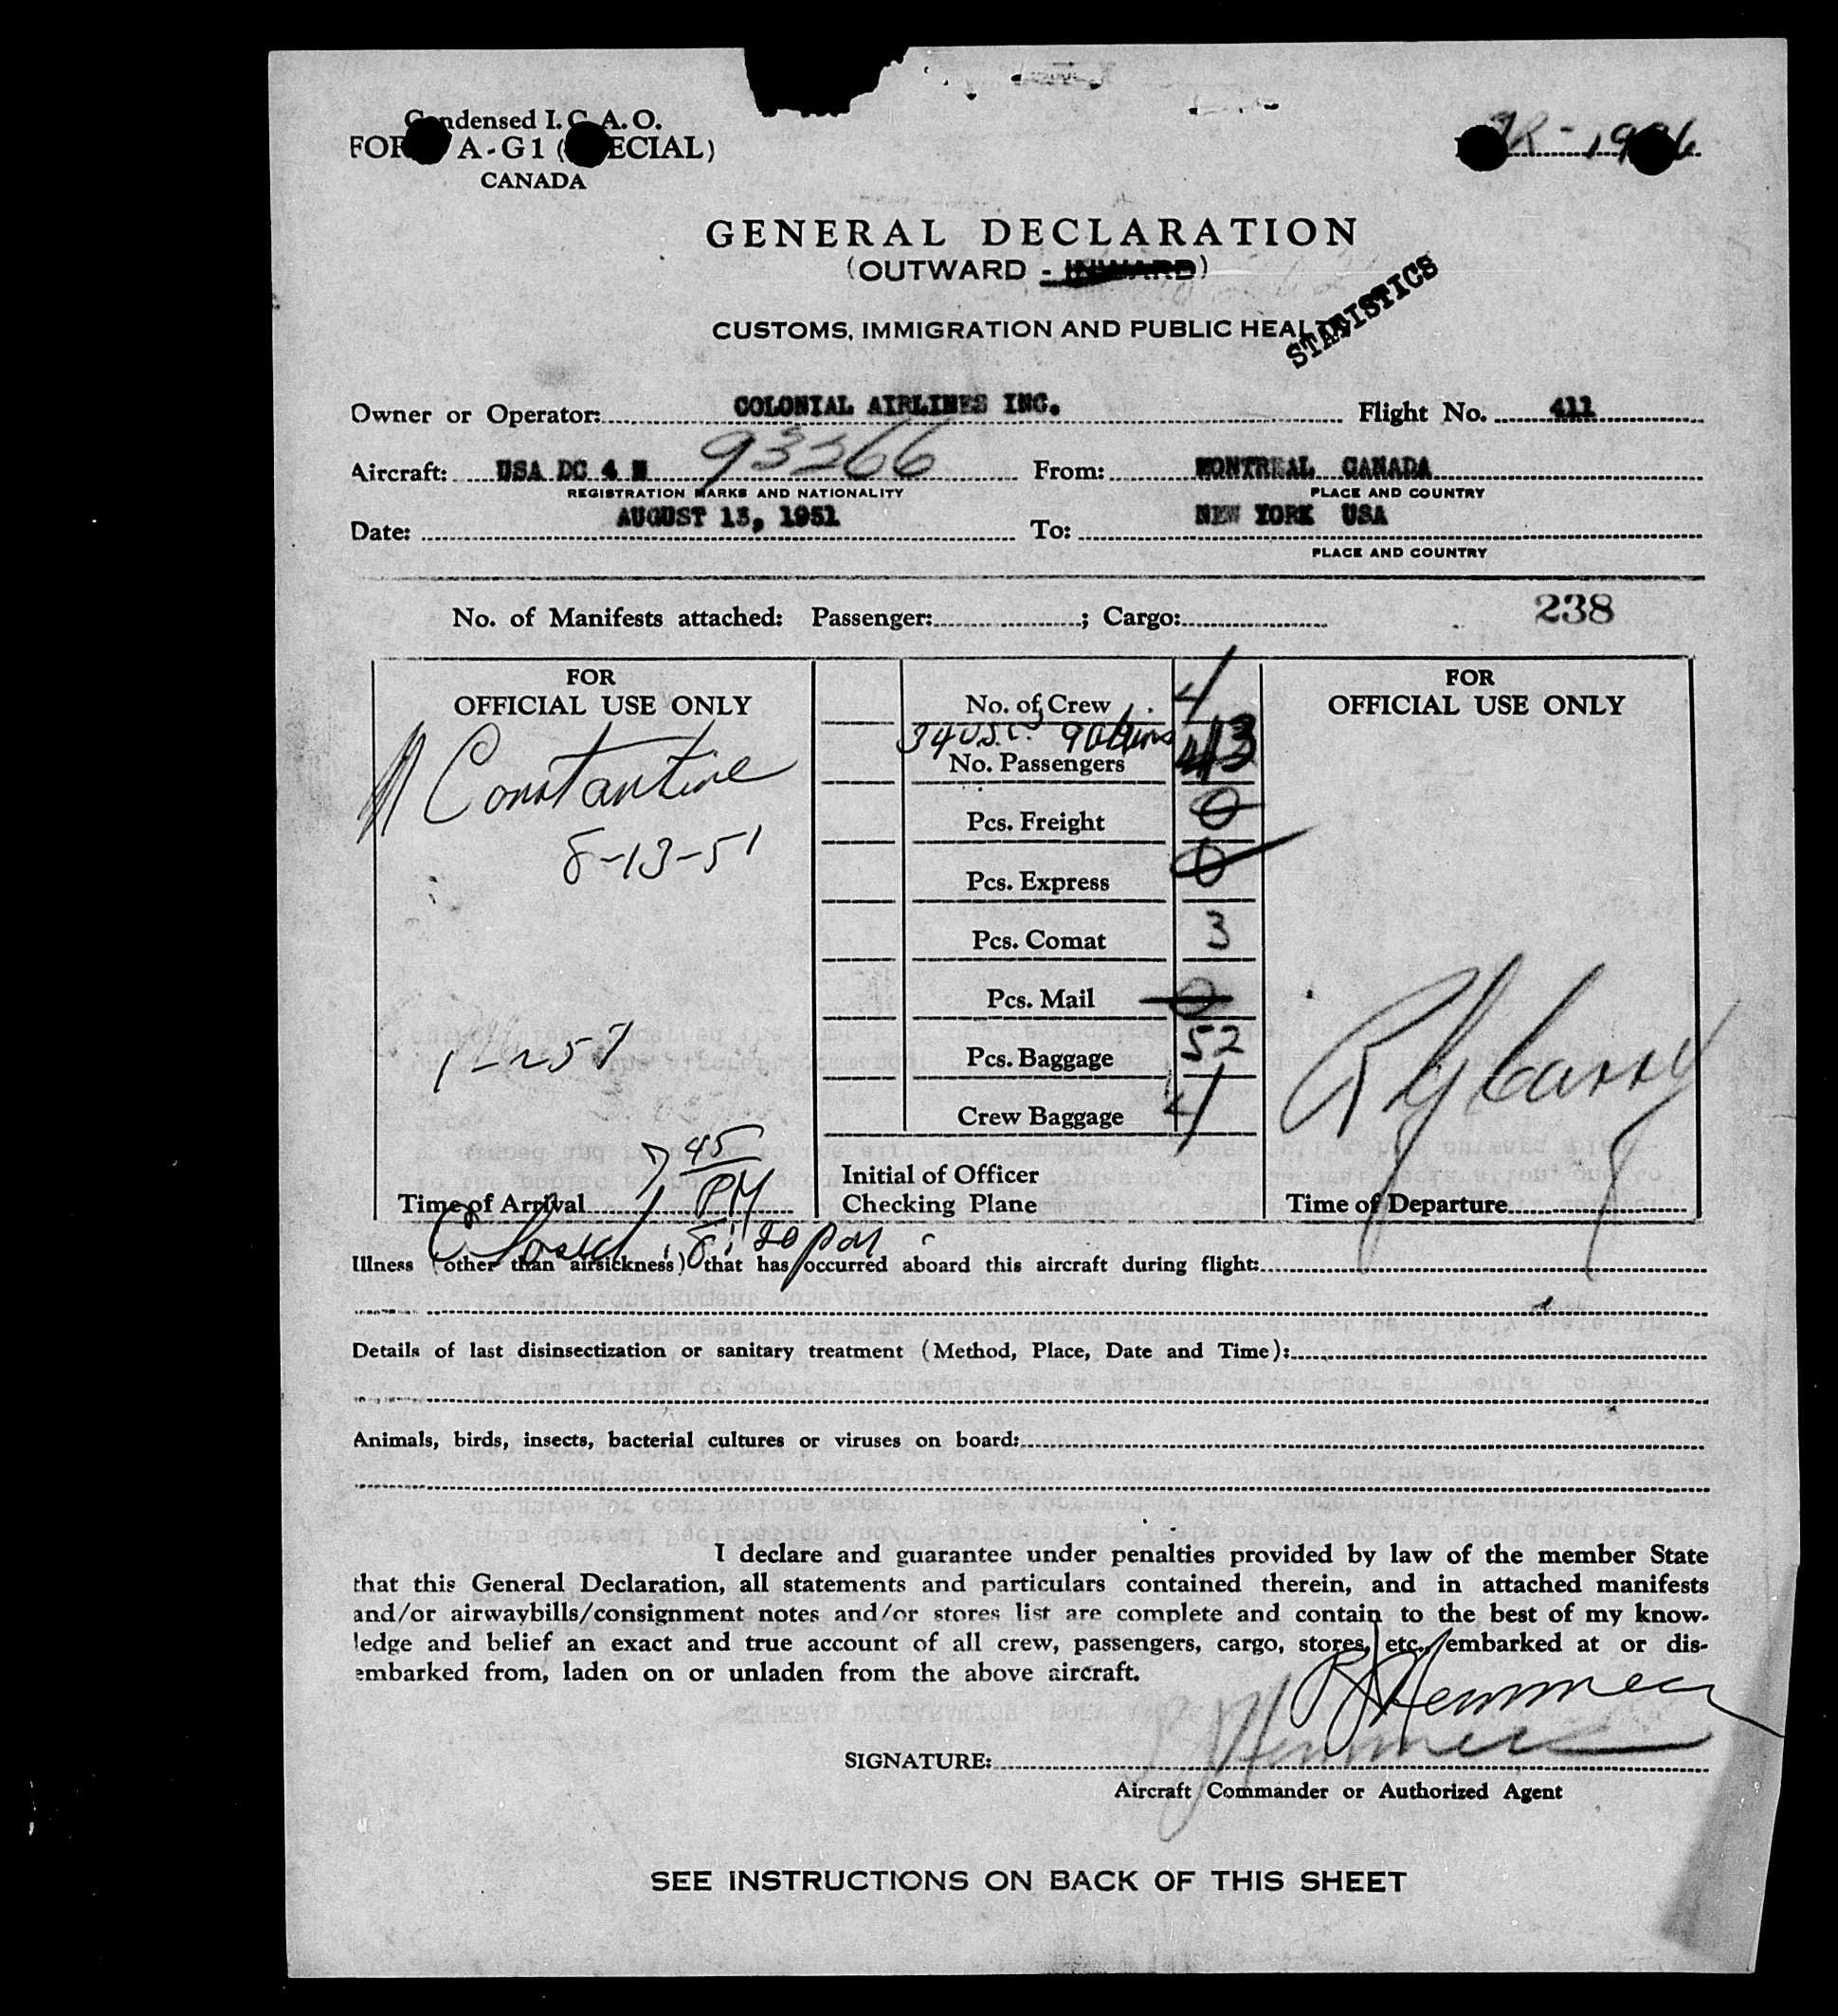 Condensed I.C.A.O.
FORM A-G1 (SPECIAL)
CANADA
GENERAL DECLARATION
(OUTWARD - INWARD)
STATISTICS
CUSTOMS, IMMIGRATION AND PUBLIC HEALTH
Owner or Operator: COLONIAL AIRLINES INC. Flight No. 411
Aircraft: USA DC 4 N 93266 From: MONTREAL CANADA
REGISTRATION MARKS AND NATIONALITY PLACE AND COUNTRY
Date: AUGUST 13, 1951 To: NEW YORK USA
PLACE AND COUNTRY
No. of Manifests attached: Passenger: ; Cargo: 238
FOR
OFFICIAL USE ONLY
Constantine
8-13-51
7 45 PM
Time of Arrival
Closed 8:20 PM
No. of Crew 4
34 U.S.C. 9 aliens
No. Passengers 43
Pcs. Freight 0
Pcs. Express 0
Pcs. Comat 3
Pcs. Mail 0
Pcs. Baggage 52
Crew Baggage 4
Initial of Officer
Checking Plane
FOR
OFFICIAL USE ONLY
Time of Departure
Illness (other than airsickness) that has occurred aboard this aircraft during flight:
Details of last disinsectization or sanitary treatment (Method, Place, Date and Time):
Animals, birds, insects, bacterial cultures or viruses on board:
I declare and guarantee under penalties provided by law of the member State
that this General Declaration, all statements and particulars contained therein, and in attached manifests
and/or airwaybills/consignment notes and/or stores list are complete and contain to the best of my know-
ledge and belief an exact and true account of all crew, passengers, cargo, stores, etc., embarked at or dis-
embarked from, laden on or unladen from the above aircraft.
SIGNATURE:
Aircraft Commander or Authorized Agent
SEE INSTRUCTIONS ON BACK OF THIS SHEET